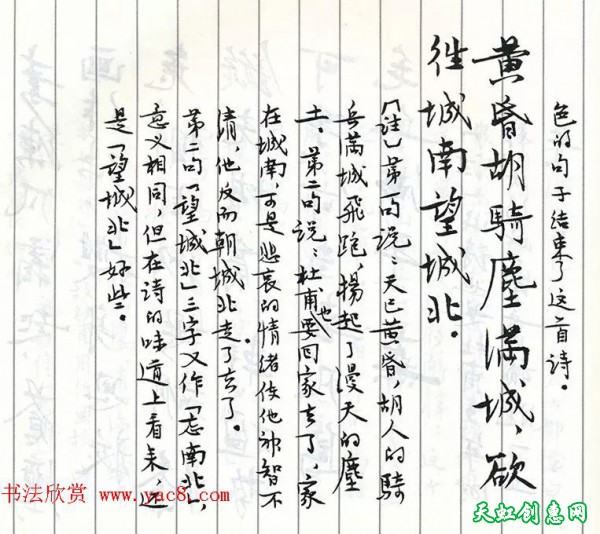 色的句子结束了这首诗。
黄昏胡騎塵满城，欲
往城南望城北。
「註」第一句说：天已黄昏，胡人的騎
兵满城飛跑，揚起了漫天的塵
土。第二句说：杜甫也要回家去了，家
在城南，可是悲哀的情绪使他神智不
清，他反而朝城北走了去了。
第二句「望城北」三字又作「忘南北」，
意义相同，但在诗的味道上看来，还
是「望城北」好些。
书法欣赏 www.yac8.com
天虹创意网